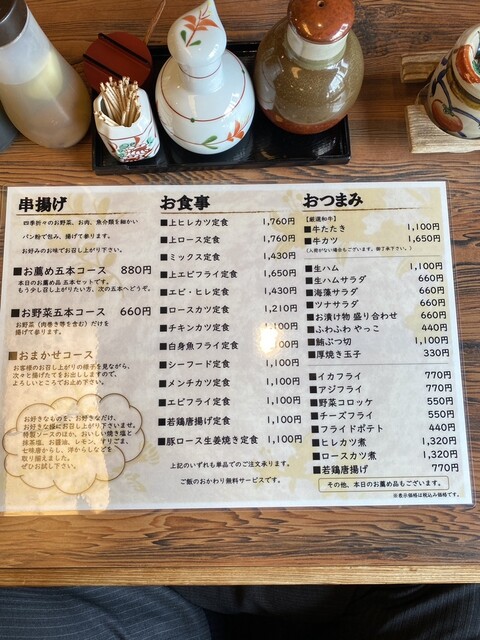 串揚げ
四季折々のお野菜、お肉、魚介類を細かい
パン粉で包み、揚げて参ります。
お好みのお味でお召し上がり下さい。
■お薦め五本コース 880円
本日のお薦め品 五本セットです。
もう少し召し上がりたい方、次の五本へどうぞ。
■お野菜五本コース 660円
お野菜(肉巻き等を含む)だけを
揚げて参ります。
■おまかせコース
お客様のお召し上がりの様子を見ながら、
次々と揚げたてをお出ししますので、
よろしいところでお止め下さい。
お好きなものを、お好きなだけ、
お好きな様にお召し上がり下さいませ。
特製ソースのほか、おいしい焼き塩と
抹茶塩、お醤油、レモン、すりごま、
七味唐からし、洋からしなどを
取り揃えました。
ぜひお試し下さい。
お食事
■上ヒレカツ定食 1,760円
■上ロース定食 1,760円
■ミックス定食 1,430円
■上エビフライ定食 1,650円
■エビ・ヒレ定食 1,430円
■ロースカツ定食 1,210円
■チキンカツ定食 1,100円
■白身魚フライ定食 1,100円
■シーフード定食 1,100円
■メンチカツ定食 1,100円
■エビフライ定食 1,100円
■若鶏唐揚げ定食 1,100円
■豚ロース生姜焼き定食 1,100円
上記のいずれも単品でのご注文承ります。
ご飯のおかわり無料サービスです。
おつまみ
【厳選和牛】
■牛たたき 1,100円
■牛カツ 1,650円
(入荷がない場合もございます。御了承下さい。)
■生ハム 1,100円
■生ハムサラダ 660円
■海藻サラダ 660円
■ツナサラダ 660円
■お漬け物 盛り合わせ 660円
■ふわふわ やっこ 440円
■鮪ぶつ切 1,100円
■厚焼き玉子 330円
■イカフライ 770円
■アジフライ 770円
■野菜コロッケ 550円
■チーズフライ 550円
■フライドポテト 440円
■ヒレカツ煮 1,320円
■ロースカツ煮 1,320円
■若鶏唐揚げ 770円
その他、本日のお薦め品もございます。
※表示価格は税込み価格です。